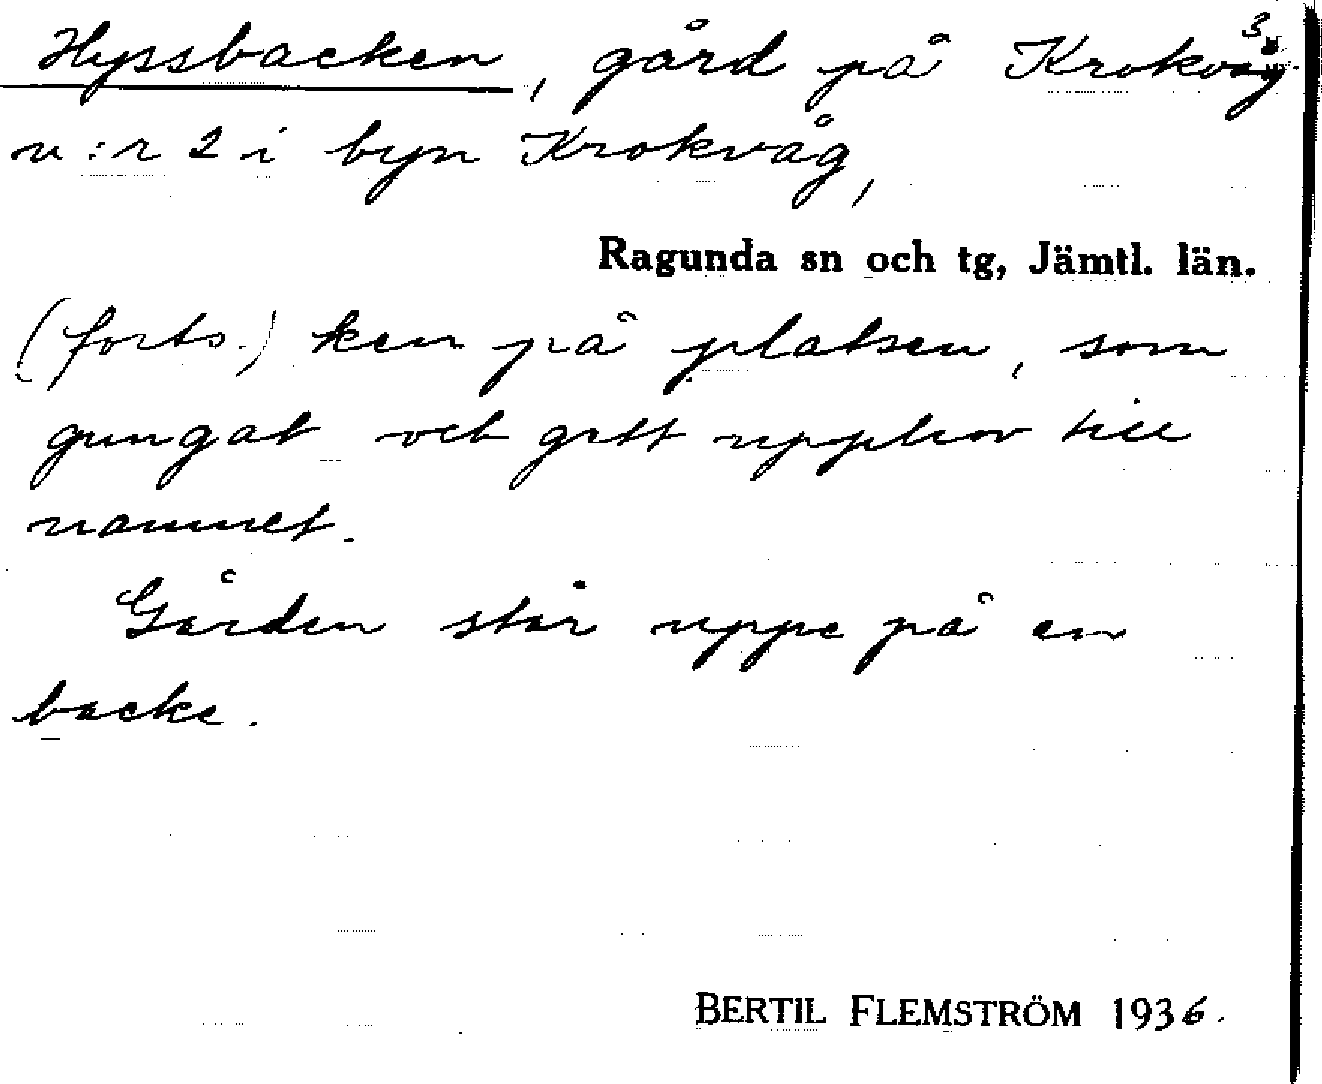 3.
Hyssbacken, gård på Krokvåg
n:r 2 i byn Krokvåg,
Ragunda sn och tg, Jämtl. län.
(forts.) ken på platsen, som
gungat och gett upphov till
namnet.
Gården står uppe på en
backe.
BERTIL FLEMSTRÖM 1936.